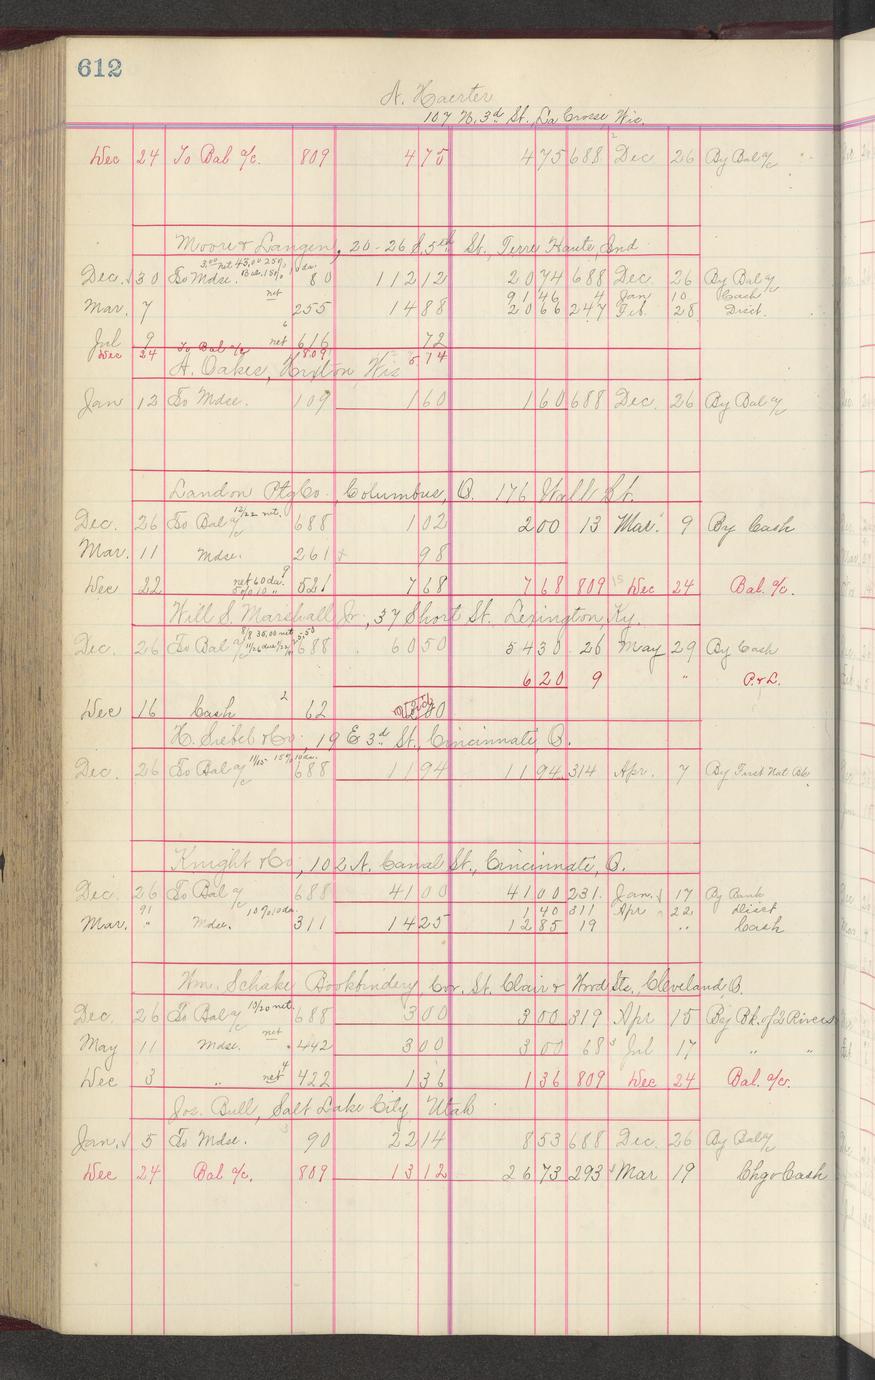 612
A. Haerter
107 N. 3d St. La Crosse Wis.
Dec 24 To Bal a/c. 809 4 75 4 75 688 Dec 26 By Bal a/c
Moore & Langen, 20-26 S. 5th St. Terre Haute, Ind
Dec. 30 To Mdse. 80 112 12 20 74 688 Dec 26 By Bal a/c
91 46 4 Jan 10 Cash
Mar. 7 net 255 14 88 20 66 247 Feb. 28 Disct.
Jul 9 net 616 72
Dec 24 To Bal a/c 809 5 74
A. Oakes, Hixton Wis
Jan 12 To Mdse. 109 1 60 1 60 688 Dec. 26 By Bal a/c
Landon Ptg Co., Columbus, O. 176 Wall St.
Dec. 26 To Bal a/c 12/22 net. 688 1 02 2 00 13 Mar. 9 By Cash
Mar. 11 Mdse. 261 98
Dec 22 net 60 da. 5% 10 " 521 7 68 7 68 809 Dec 24 Bal. a/c.
Will S. Marshall Jr., 37 Short St. Lexington Ky.
Dec. 26 To Bal a/c 688 60 50 54 30 26 May 29 By Cash
6 20 9 " P. & L.
Dec 16 Cash 62 Void
H. Siebel & Co., 19 E 3d St., Cincinnati, O.
Dec. 26 To Bal a/c 11/25 15% 10 da. 688 11 94 11 94 314 Apr. 7 By First Nat Bk
Knight & Co, 102 N. Canal St., Cincinnati, O.
Dec. 26 To Bal a/c 688 41 00 41 00 231 Jan. 17 By Bank
1 40 311 Apr 22 Disct
Mar. " Mdse. 10% 10 da. 311 14 25 12 85 19 " Cash
Wm. Schake Bookbindery Cor. St. Clair & Wood Sts., Cleveland, O.
Dec 26 To Bal a/c 10/20 net 688 3 00 3 00 319 Apr 15 By Bk. of 2 Rivers
May 11 Mdse. net 442 3 00 3 00 68 Jul 17 " "
Dec 3 " net 422 1 36 1 36 809 Dec 24 Bal. a/c.
Jos. Bull, Salt Lake City Utah
Jan. 5 To Mdse. 90 22 14 8 53 688 Dec. 26 By Bal a/c
Dec 24 Bal a/c. 809 13 12 26 73 293 Mar 19 Chgo Cash